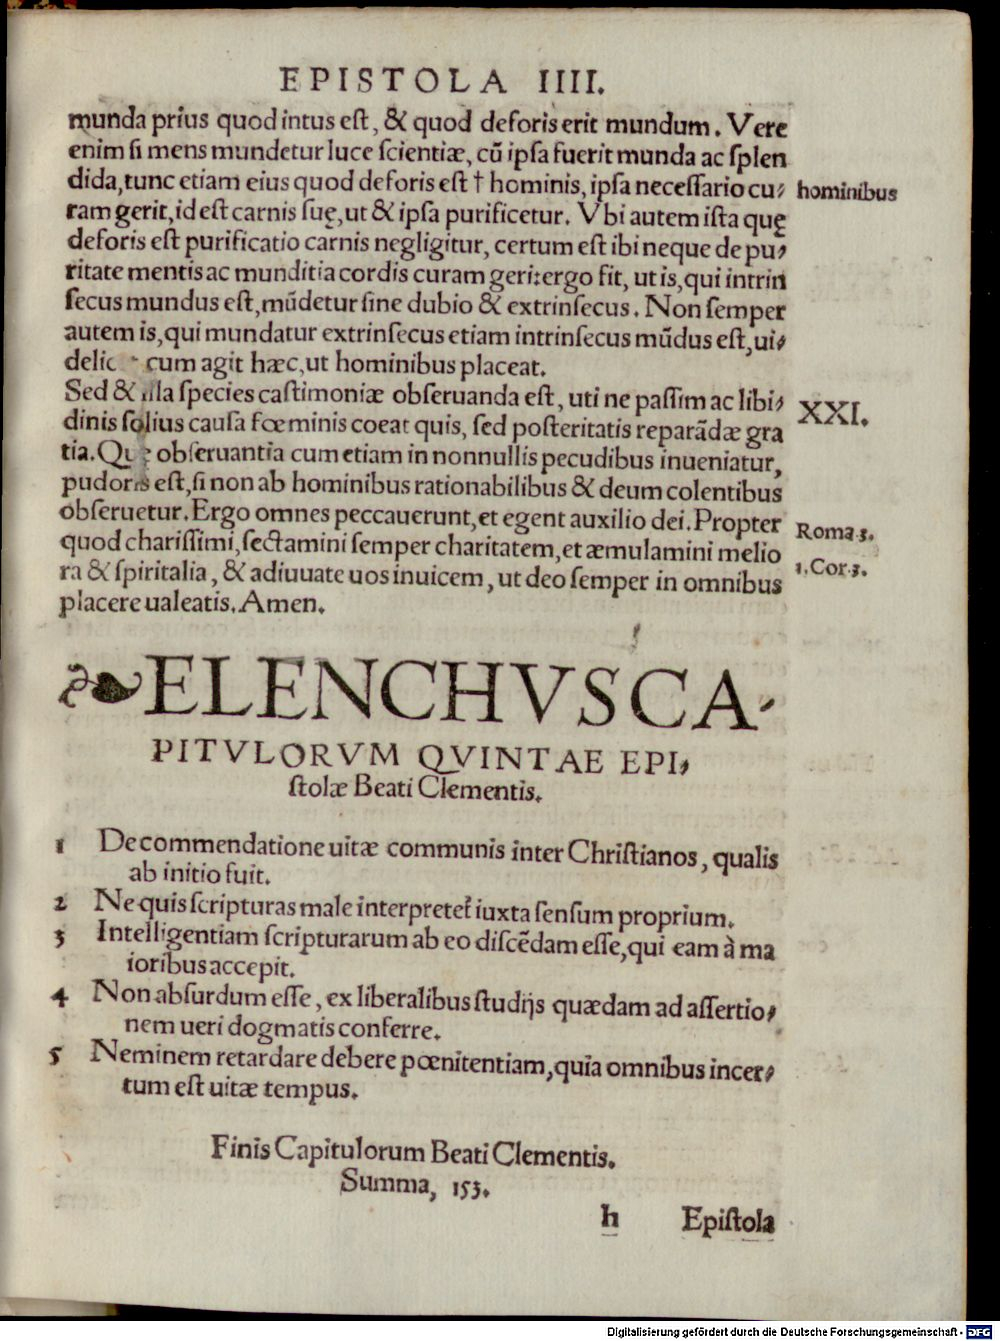 EPISTOLA IIII.
munda prius quod intus eſt, & quod deforis erit mundum. Vere
enim ſi mens mundetur luce ſcientiæ, cũ ipſa fuerit munda ac ſplen
dida, tunc etiam eius quod deforis eſt † hominis, ipſa neceſſario cu⸗ hominibus
ram gerit, id eſt carnis ſuę, ut & ipſa purificetur. Vbi autem iſta quę
deforis eſt purificatio carnis negligitur, certum eſt ibi neque de pu⸗
ritate mentis ac munditia cordis curam geri: ergo fit, ut is, qui intrin
ſecus mundus eſt, mũdetur ſine dubio & extrinſecus. Non ſemper
autem is, qui mundatur extrinſecus etiam intrinſecus mũdus eſt, ui⸗
cum agit hæc, ut hominibus placeat.
Sed & illa ſpecies caſtimoniæ obſeruanda eſt, uti ne paſſim ac libi⸗ XXI.
dinis ſolius cauſa fœminis coeat quis, ſed poſteritatis reparãdæ gra
tia. Quę obſeruantia cum etiam in nonnullis pecudibus inueniatur,
pudoris eſt, ſi non ab hominibus rationabilibus & deum colentibus
obſeruetur. Ergo omnes peccauerunt, et egent auxilio dei. Propter Roma.3.
quod chariſſimi, ſectamini ſemper charitatem, et æmulamini melio 1.Cor.3.
ra & ſpiritalia, & adiuuate uos inuicem, ut deo ſemper in omnibus
placere ualeatis. Amen.
❧ELENCHVS CA⸗
PITVLORVM QVINTAE EPI⸗
ſtolæ Beati Clementis.
1 De commendatione uitæ communis inter Chriſtianos, qualis
ab initio fuit.
2 Ne quis ſcripturas male interpretet᷑ iuxta ſenſum proprium.
3 Intelligentiam ſcripturarum ab eo diſcẽdam eſſe, qui eam à ma
ioribus accepit.
4 Non abſurdum eſſe, ex liberalibus ſtudijs quædam ad aſſertio⸗
nem ueri dogmatis conferre.
5 Neminem retardare debere pœnitentiam, quia omnibus incer⸗
tum eſt uitæ tempus.
Finis Capitulorum Beati Clementis.
Summa, 153.
h Epiſtola
Digitalisierung gefördert durch die Deutsche Forschungsgemeinschaft - DFG